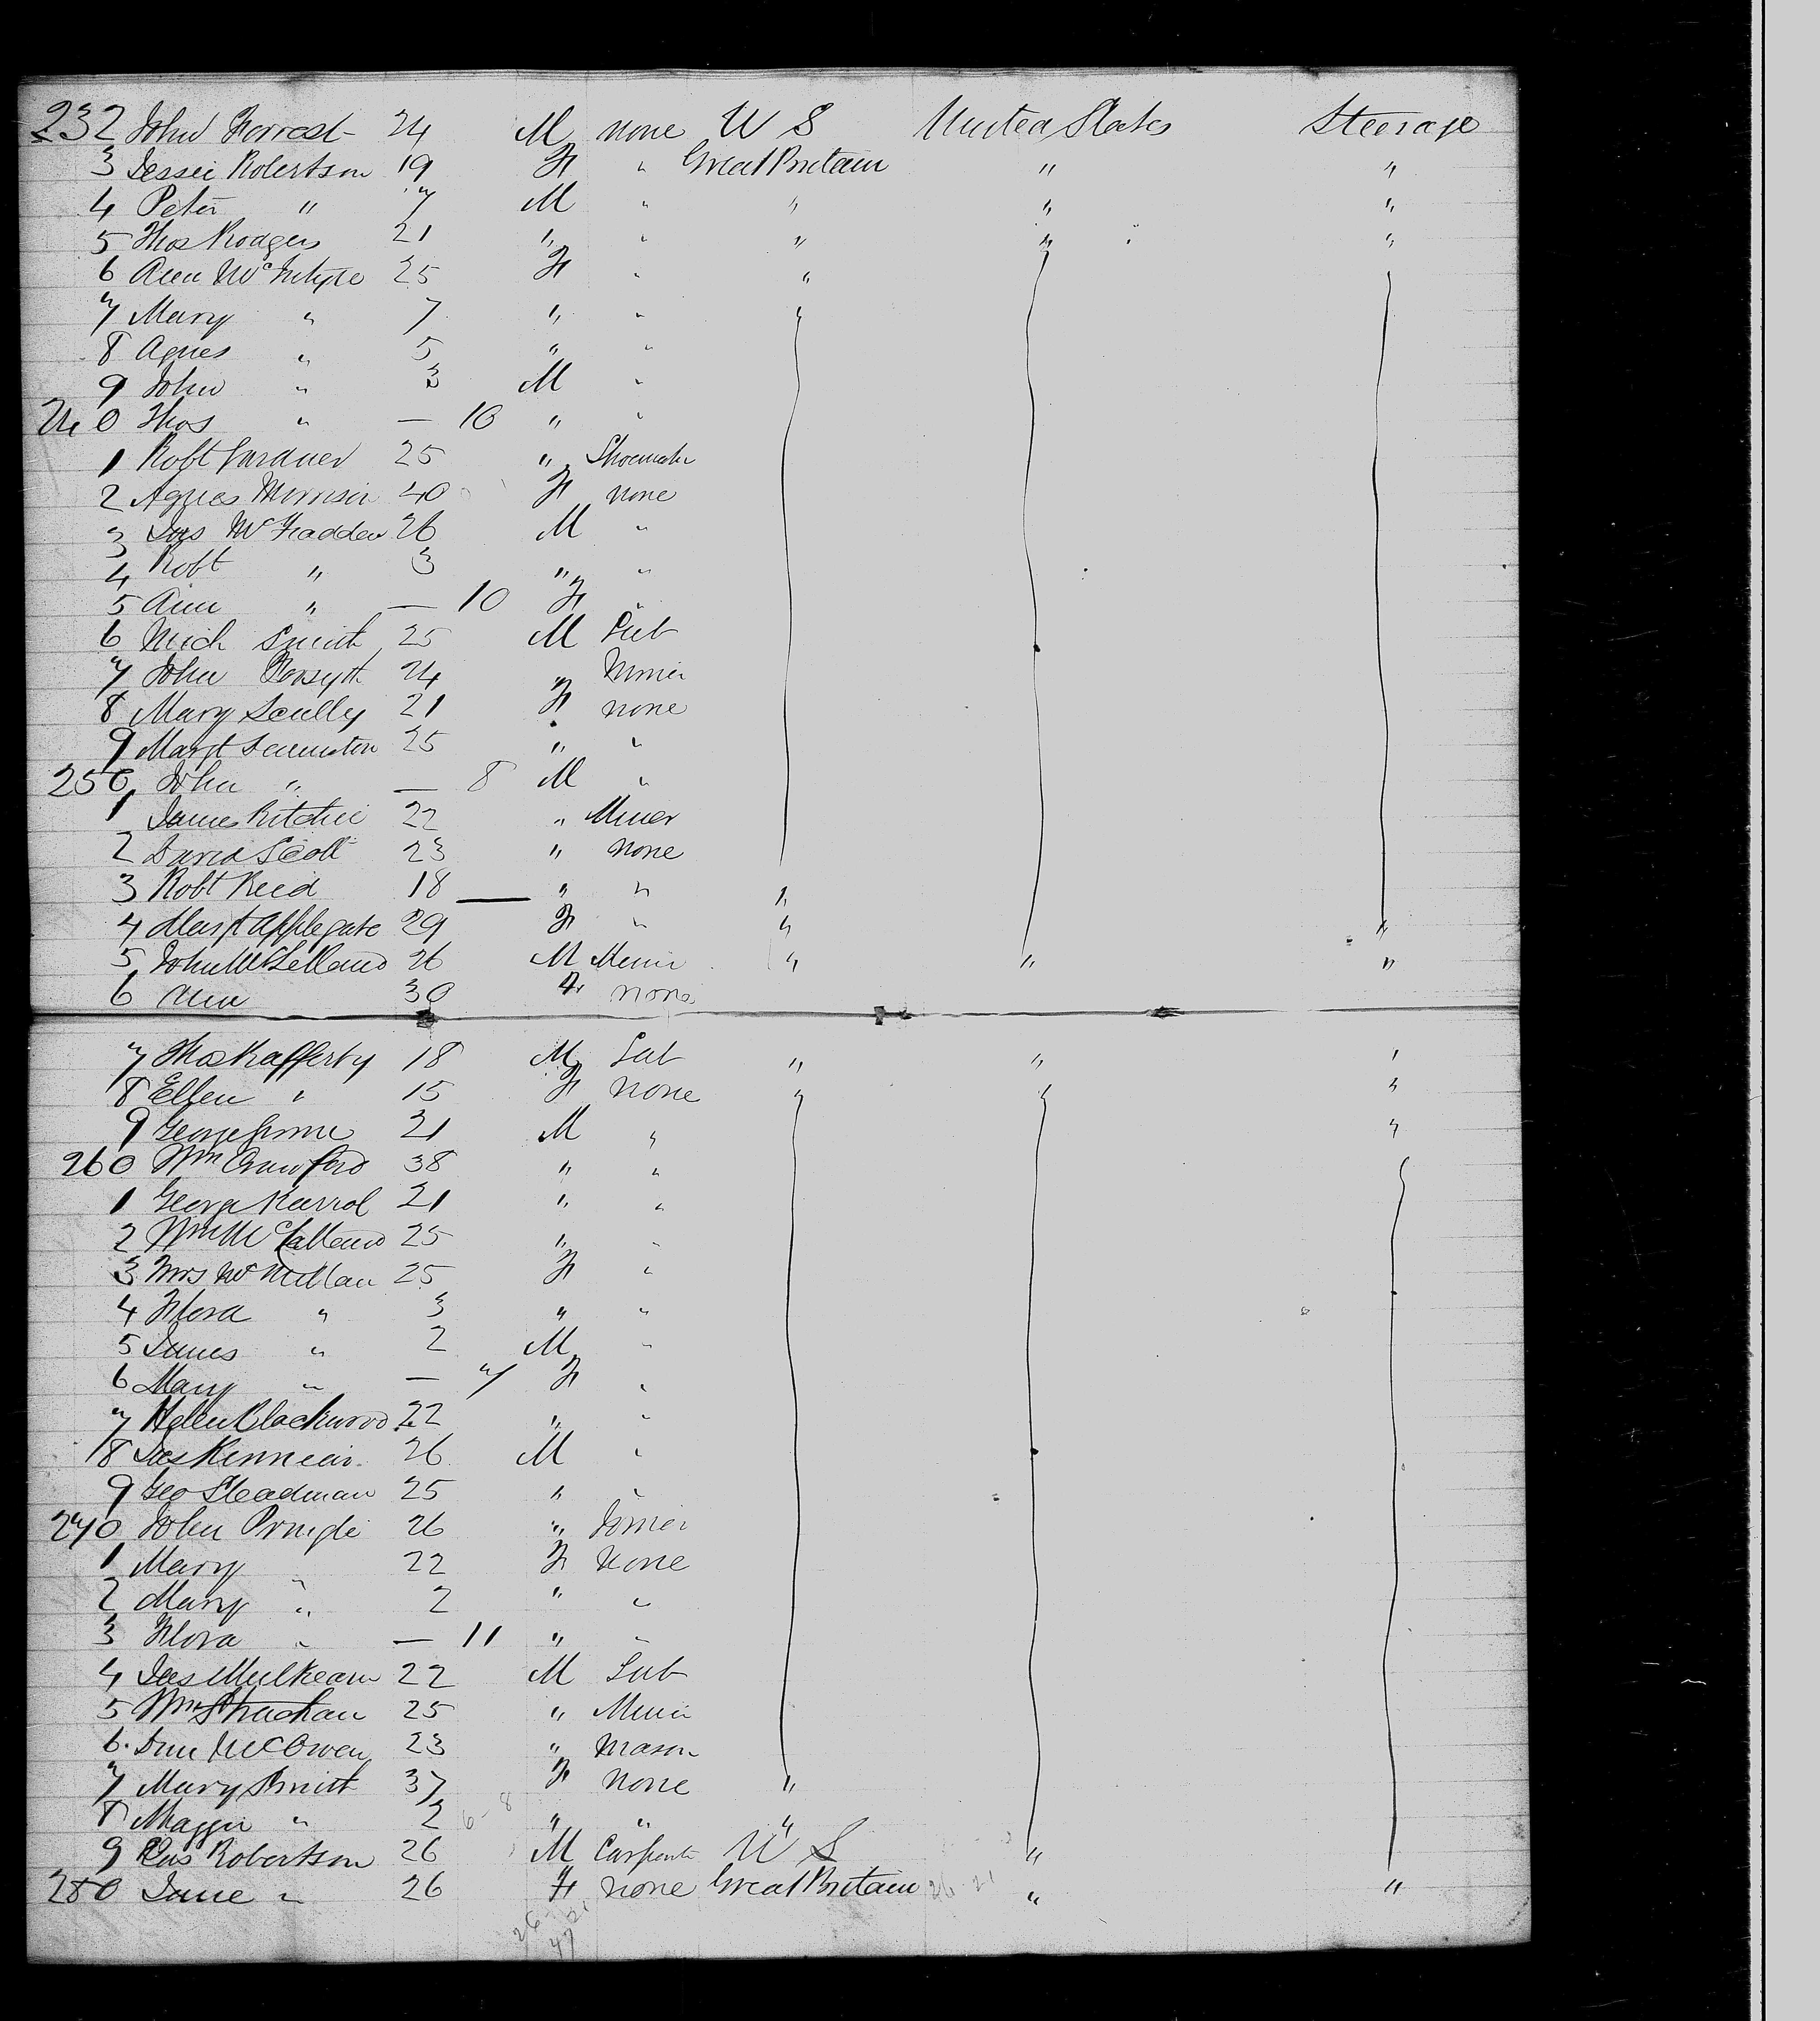 232 John Forrest 24 M none U S United States Steerage
3 Jessie Robertson 19 F " Great Britain " "
4 Peter " 7 M " " " "
5 Thos Rodgers 21 " " " " "
6 Ann McIntyre 25 F " "
7 Mary " 7 " " "
8 Agnes " 5 " "
9 John " 3 M "
240 Thos " — 10 " "
1 Robt Gardner 25 " Shoemaker
2 Agnes Morrison 40 F none
3 Jas McFadden 26 M "
4 Robt " 3 " "
5 Ann " — 10 F "
6 Mich Smith 25 M Lab
7 John Forsyth 24 " Miner
8 Mary Scully 21 F none
9 Margt 25 " "
250 John " — 8 M "
1 James Ritchie 22 " Miner
2 David Scott 23 " none
3 Robt Reid 18 — " " "
4 Margt Applegate 29 F " " "
5 John McLelland 26 M Miner " " "
6 Ann 30 F none
7 Thos Rafferty 18 M Lab " " "
8 Ellen " 15 F none " " "
9 George 21 M " "
260 Wm Crawford 38 " "
1 George Karrol 21 " "
2 Wm McClelland 25 " "
3 Mrs McMillan 25 F "
4 Flora " 3 " "
5 James " 2 M "
6 Mary " — 7 F "
7 Helen Blackwood 22 " "
8 Jas Kinnear 26 M "
9 Geo Steadman 25 " "
270 John Pringle 26 " Joiner
1 Mary 22 F none
2 Mary " 2 " "
3 Flora " — 11 " "
4 Jas Mulkearn 22 M Lab
5 Wm Strachan 25 " Miner
6 McOwen 23 " Mason
7 Mary Smith 37 F none "
8 Maggie " 2 6-8 " " "
9 Robertson 26 M Carpenter U S "
280 Jane " 26 F none Great Britain 26 21 " "
26 21
47